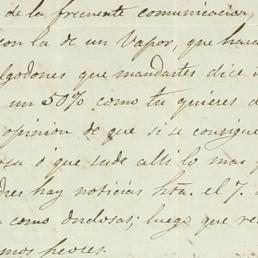 de la frecuente comunicacion,
con la de un Vapor, que hara
lgodones que mandastes dice
un 50% como tu quieres d
opinion de que si se consigue
osa i que
alli lo mas
dres hay noticias hta. el 7.
como dudosas; luego que re
mos peores.